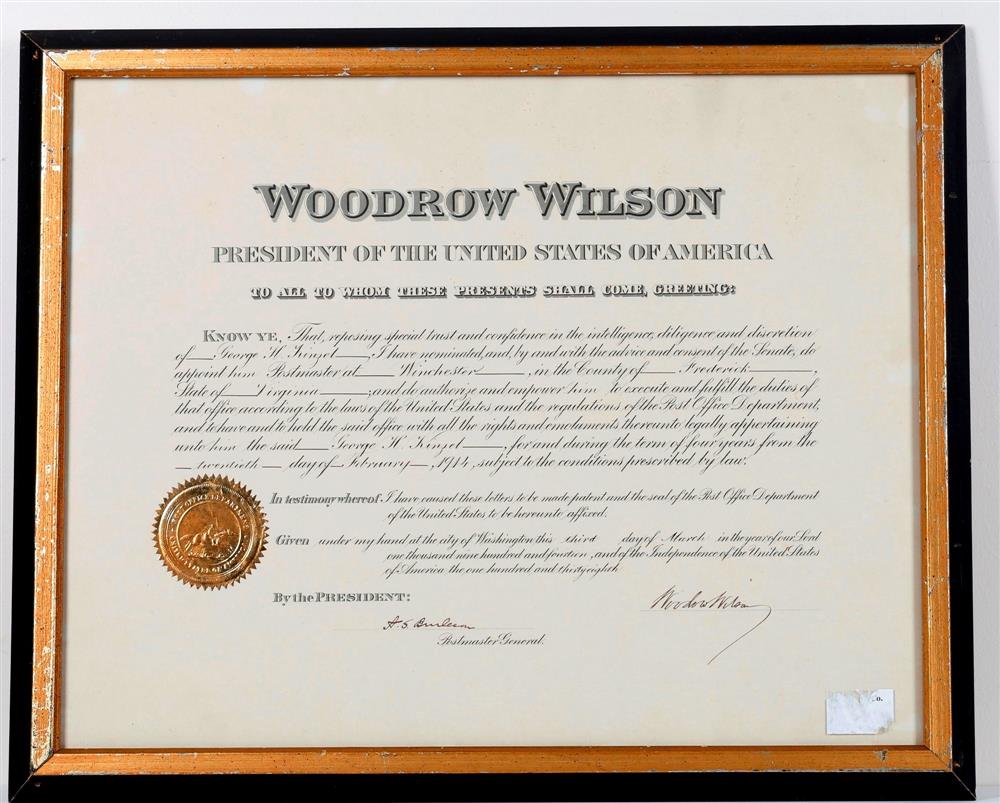 WOODROW WILSON
PRESIDENT OF THE UNITED STATES OF AMERICA
TO ALL TO WHOM THESE PRESENTS SHALL COME, GREETING:
KNOW YE, That, reposing special trust and confidence in the intelligence, diligence and discretion
of George H. Kinzel, I have nominated, and, by and with the advice and consent of the Senate, do
appoint him Postmaster at Winchester, in the County of Frederick,
State of Virginia; and do authorize and empower him to execute and fulfill the duties of
that office according to the laws of the United States and the regulations of the Post Office Department,
and to have and to hold the said office with all the rights and emoluments thereunto legally appertaining
unto him the said George H. Kinzel, for and during the term of four years from the
twentieth day of February, 1914, subject to the conditions prescribed by law.
In testimony whereof I have caused these letters to be made patent and the seal of the Post Office Department
of the United States to be hereunto affixed.
Given under my hand at the city of Washington this third day of March in the year of our Lord
one thousand nine hundred and fourteen, and of the Independence of the United States
of America the one hundred and thirty eighth
By the PRESIDENT:
Woodrow Wilson
A. S. Burleson
Postmaster General.